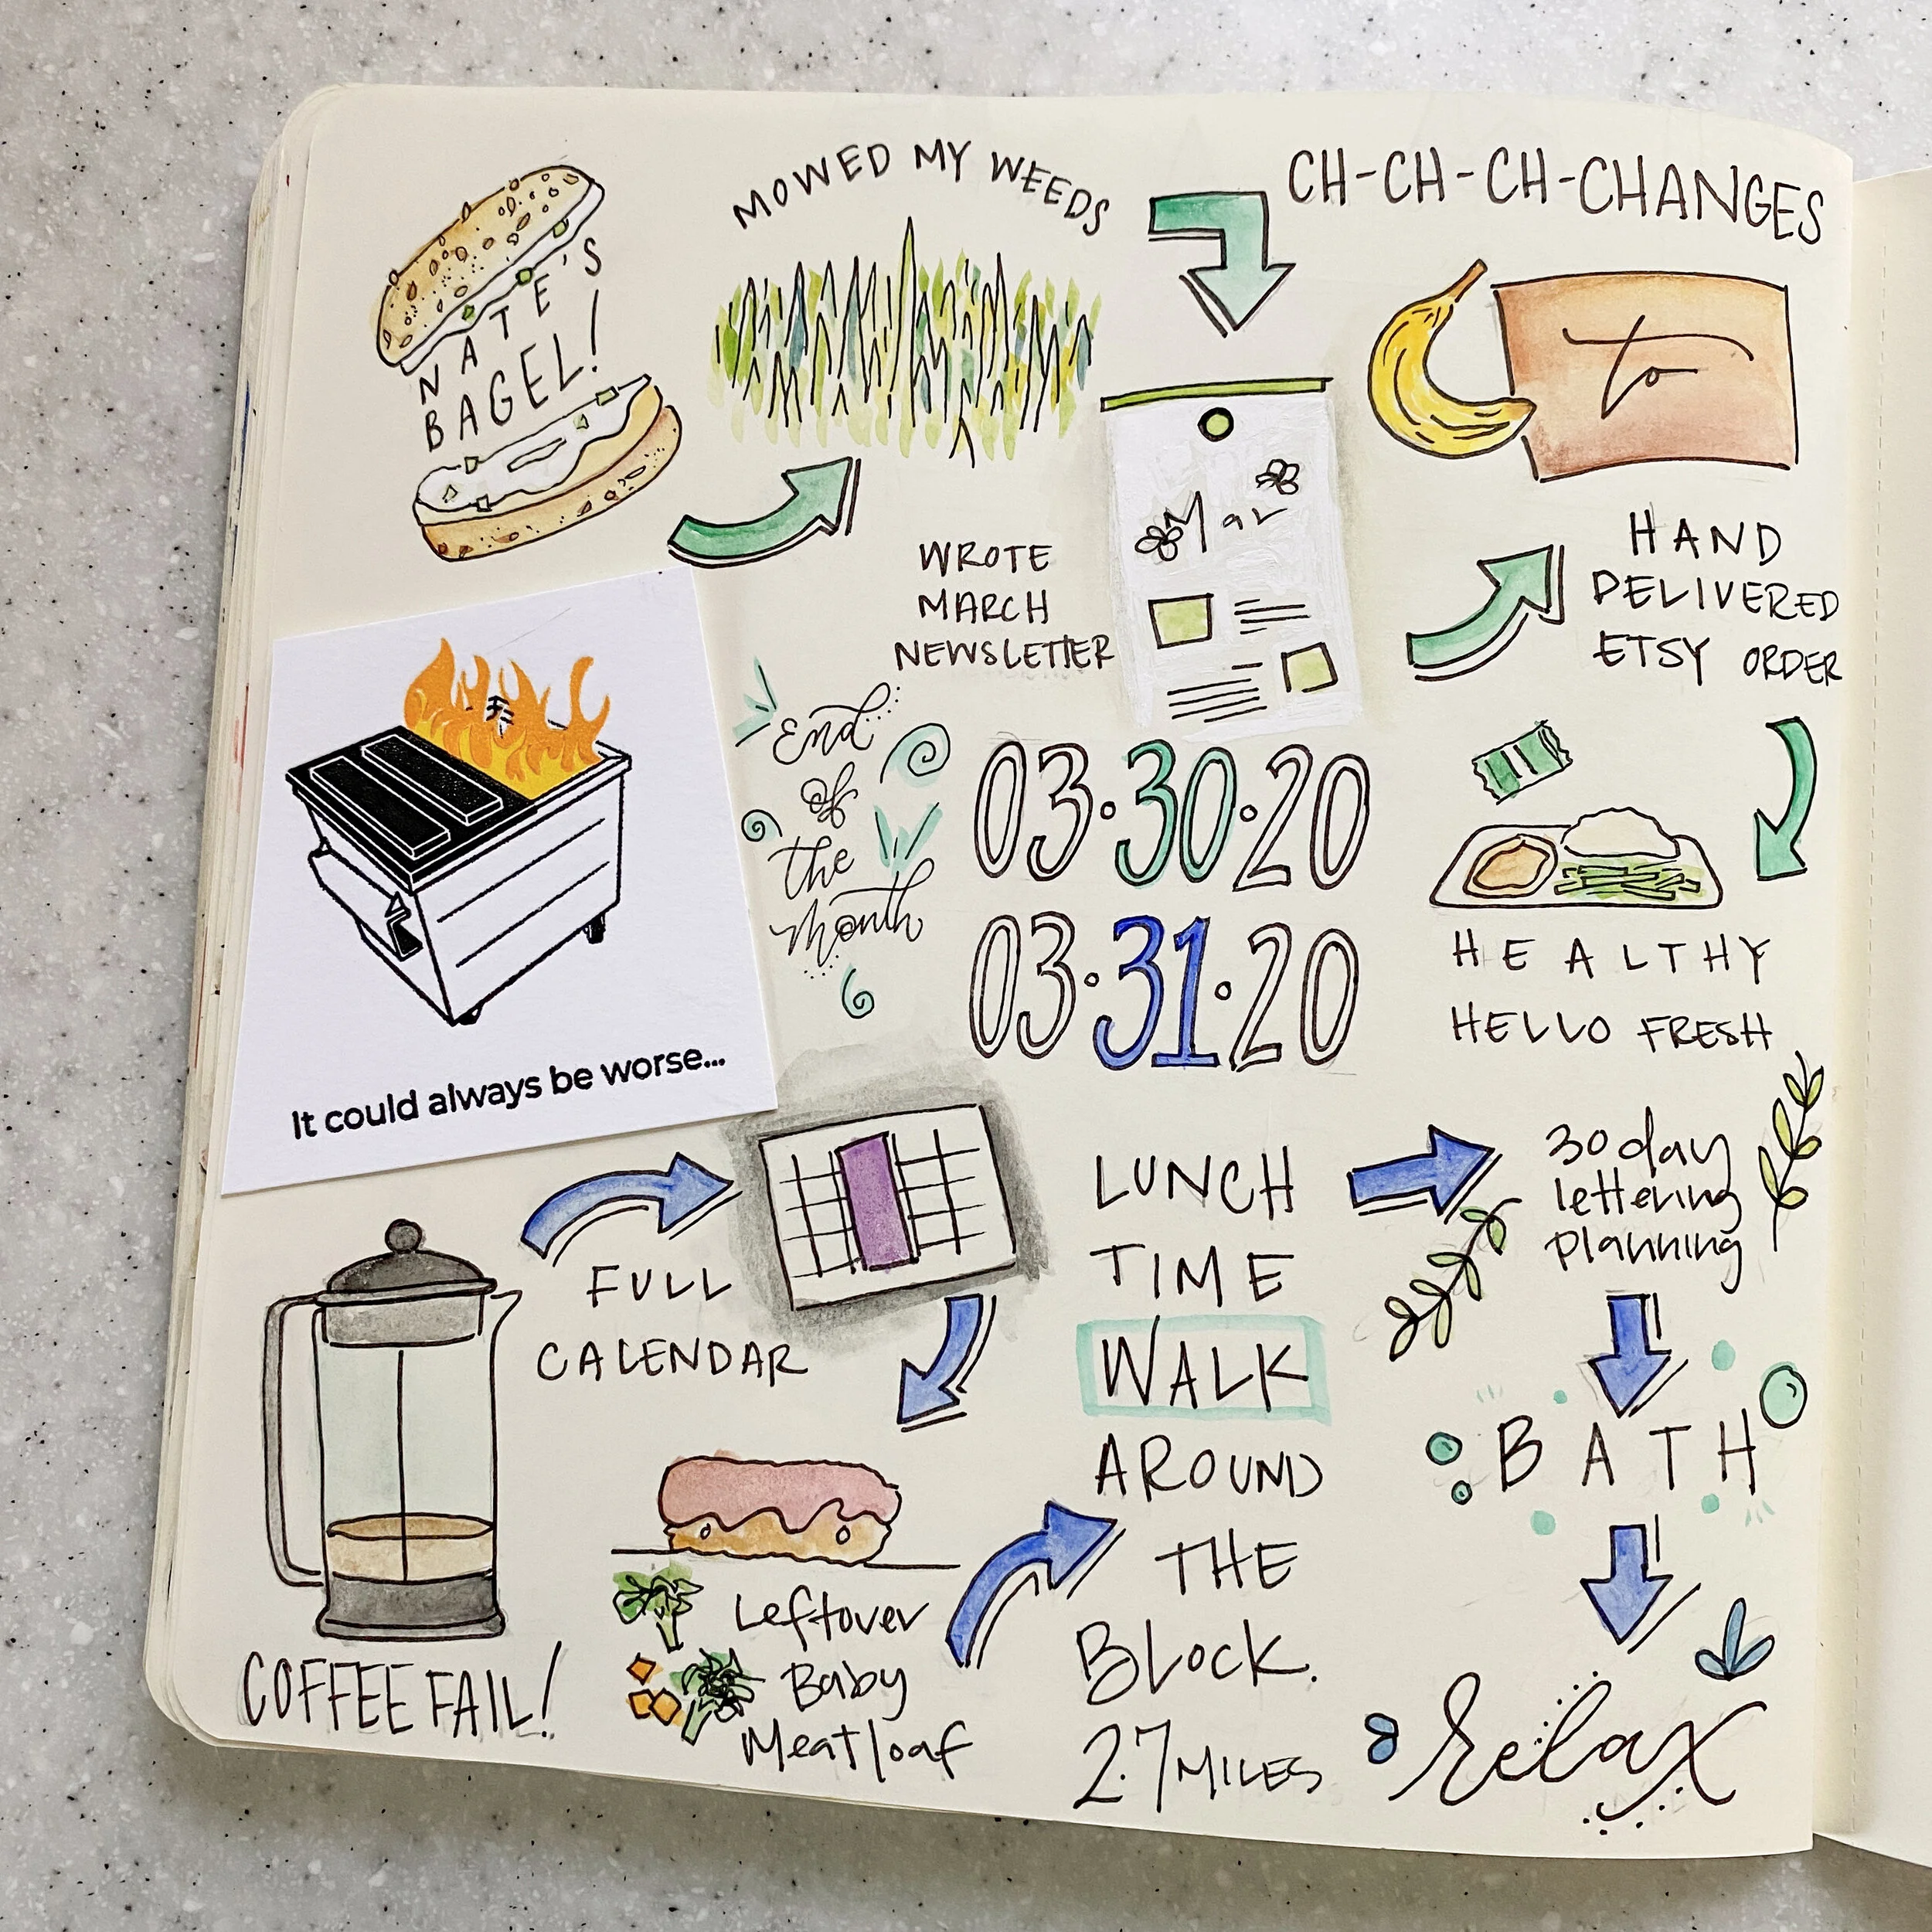 NATE'S
BAGEL!
MOWED MY WEEDS
CH-CH-CH-CHANGES
WROTE
MARCH
NEWSLETTER
Mar
to
HAND
DELIVERED
ETSY ORDER
End
of
the
Month
03.30.20
03.31.20
HEALTHY
HELLO FRESH
It could always be worse...
COFFEE FAIL!
FULL
CALENDAR
Leftover
Baby
Meatloaf
LUNCH
TIME
WALK
AROUND
THE
BLOCK.
2.7 MILES
30 day
lettering
planning
BATH
relax